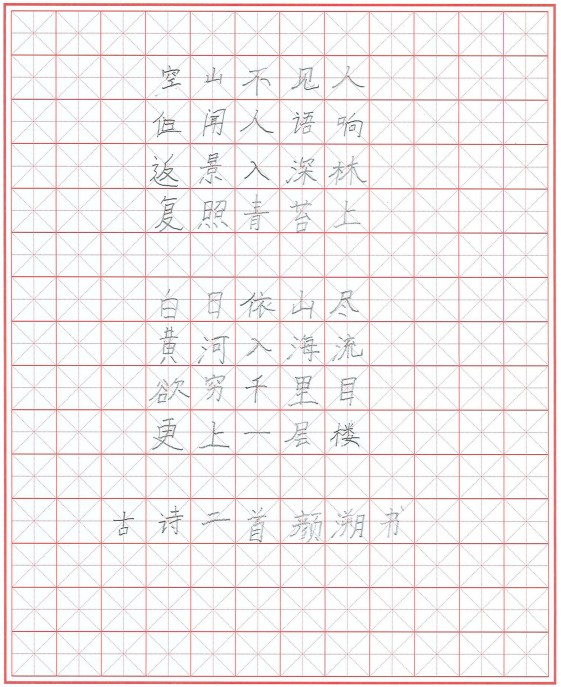 空山不见人
但闻人语响
返景入深林
复照青苔上
白日依山尽
黄河入海流
欲穷千里目
更上一层楼
古诗二首颜溯书